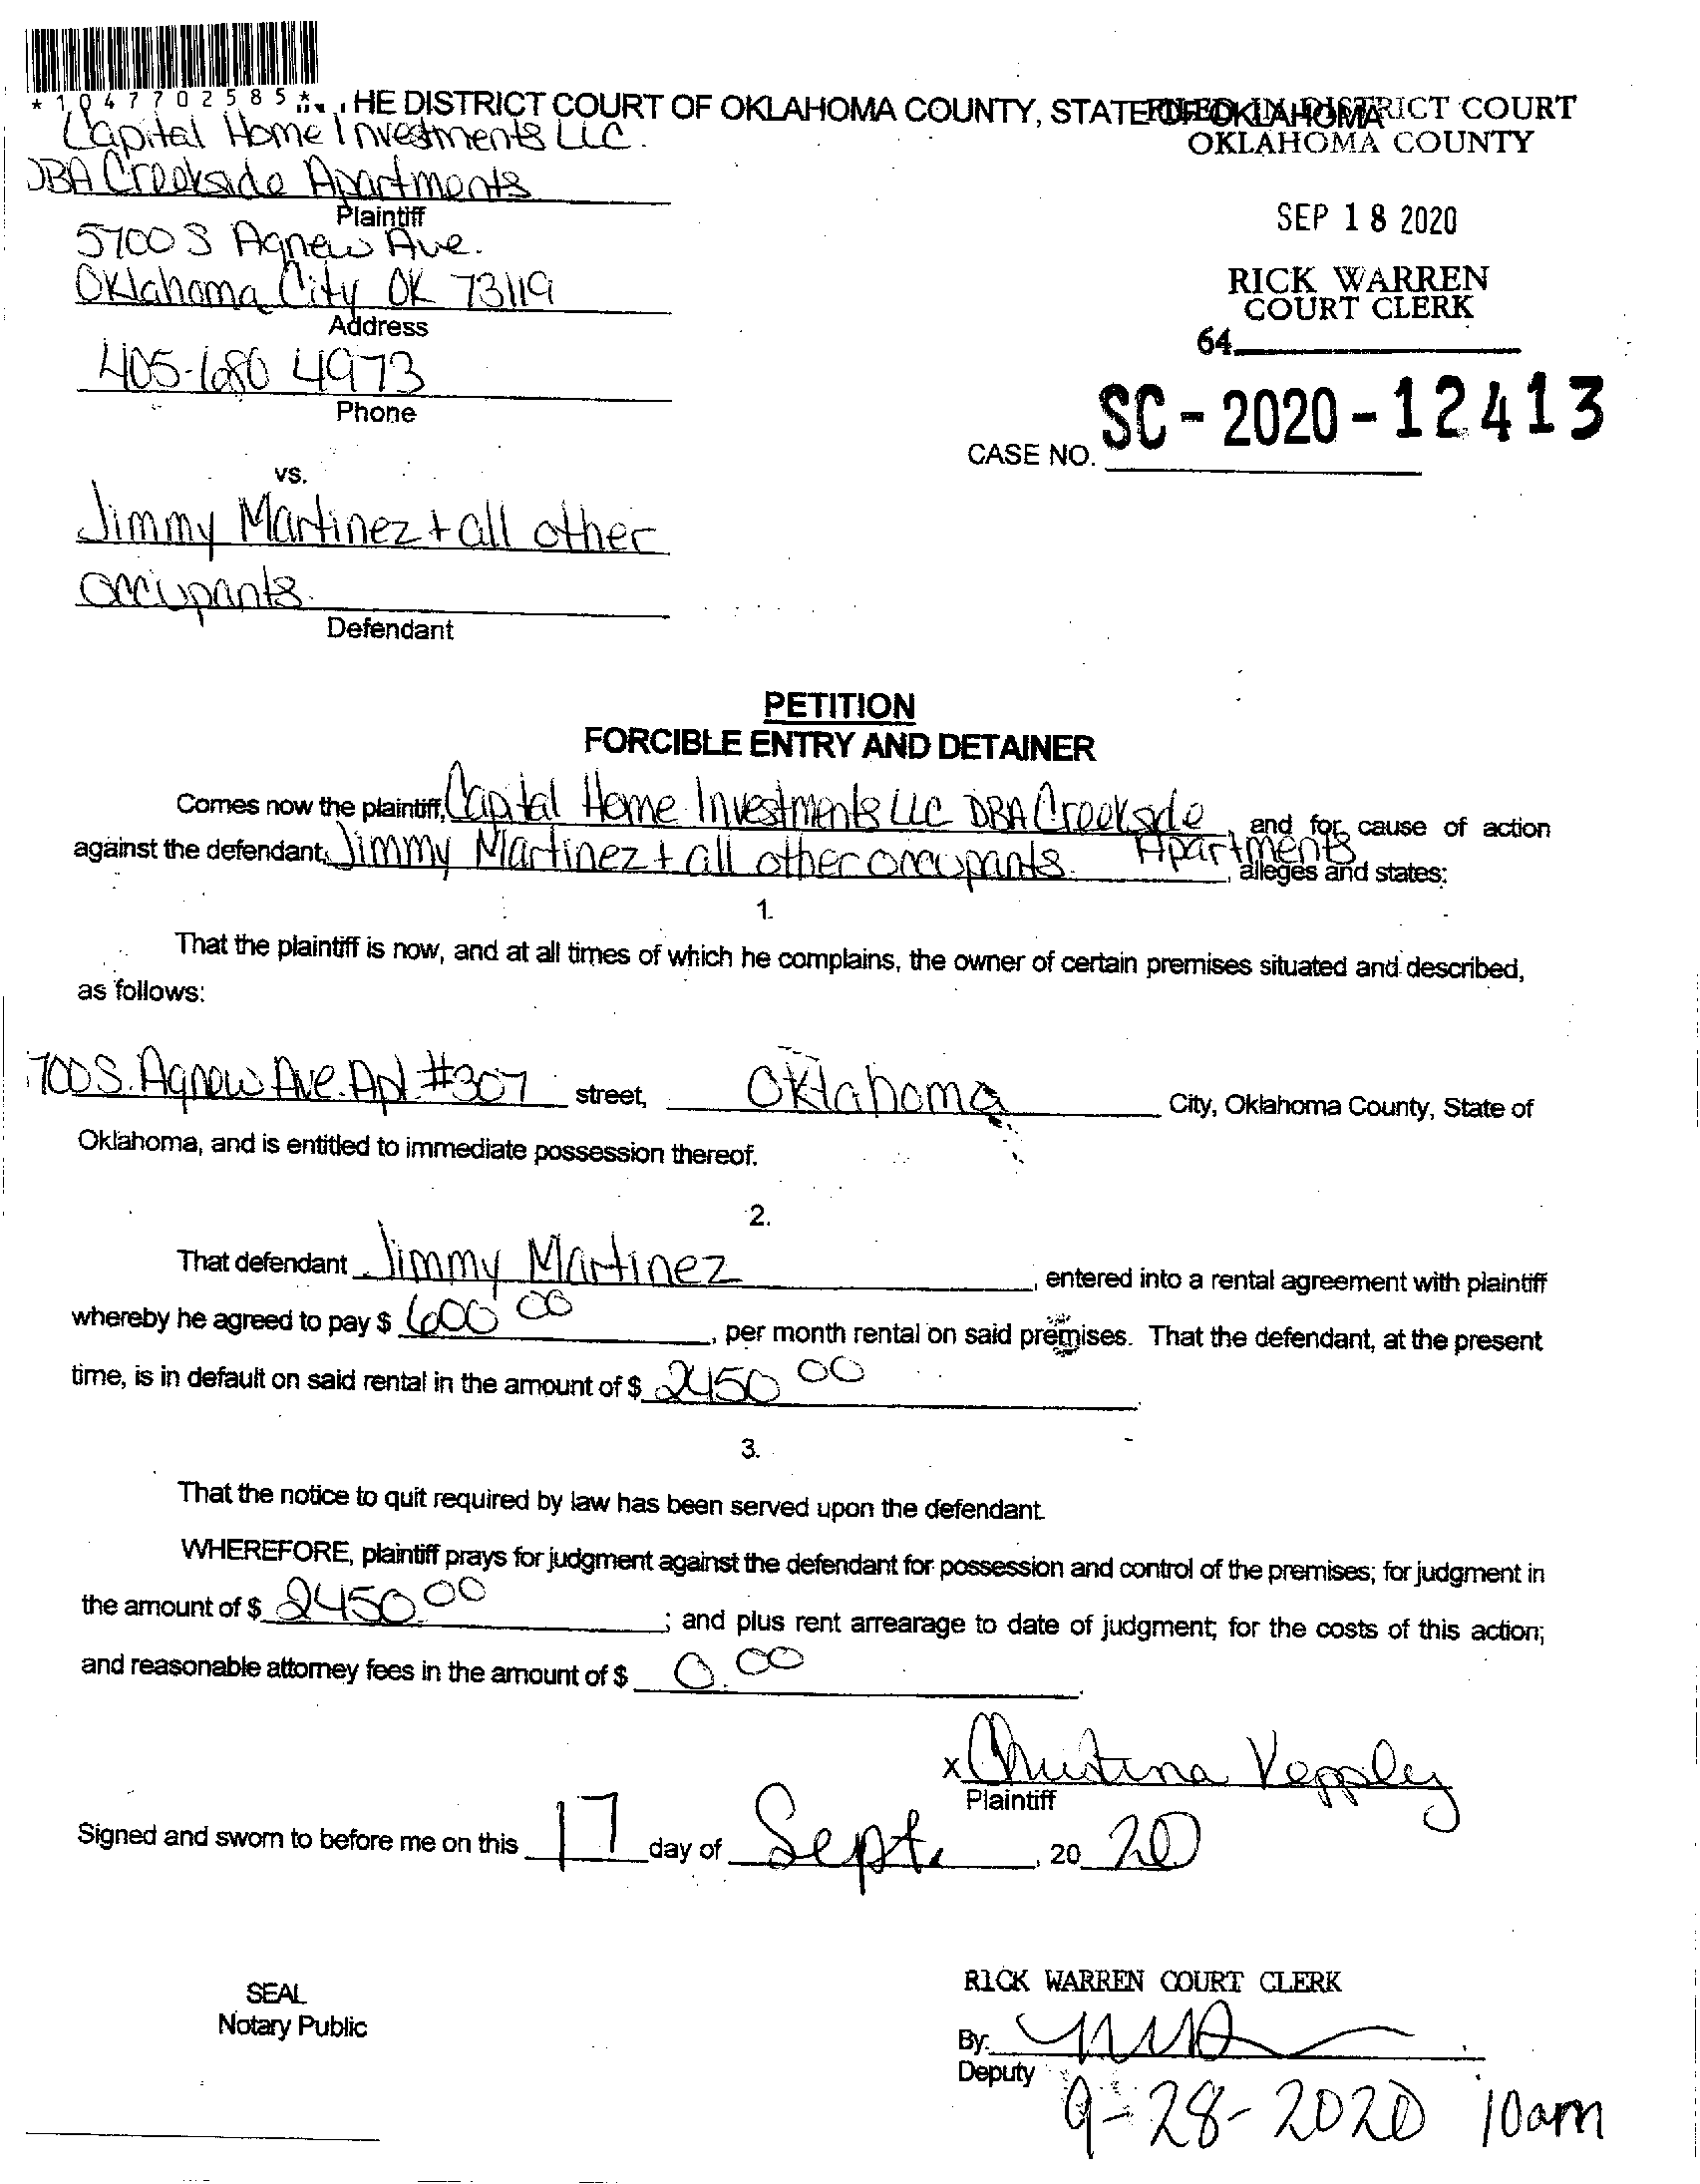 *1047702585*
HE DISTRICT COURT OF OKLAHOMA COUNTY, STATE OF OKLAHOMA
FILED IN DISTRICT COURT
OKLAHOMA COUNTY
Capital Home Investments LLC.
DBA Creekside Apartments
Plaintiff
SEP 18 2020
5700 S Agnew Ave.
Oklahoma City OK 73119
Address
RICK WARREN
COURT CLERK
64
405-680 4973
Phone
CASE NO. SC-2020-12413
vs.
Jimmy Martinez + all other
occupants.
Defendant
PETITION
FORCIBLE ENTRY AND DETAINER
Comes now the plaintiff, Capital Home Investments LLC DBA Creekside Apartments, and for cause of action
against the defendant, Jimmy Martinez + all other occupants., alleges and states:
1.
That the plaintiff is now, and at all times of which he complains, the owner of certain premises situated and described,
as follows:
700 S. Agnew Ave. Apt. #307 street, Oklahoma City, Oklahoma County, State of
Oklahoma, and is entitled to immediate possession thereof.
2.
That defendant Jimmy Martinez, entered into a rental agreement with plaintiff
whereby he agreed to pay $ 600 00, per month rental on said premises. That the defendant, at the present
time, is in default on said rental in the amount of $ 2450 00
3.
That the notice to quit required by law has been served upon the defendant.
WHEREFORE, plaintiff prays for judgment against the defendant for possession and control of the premises; for judgment in
the amount of $ 2450.00; and plus rent arrearage to date of judgment; for the costs of this action;
and reasonable attorney fees in the amount of $ 0.00
x Christina Yeppley
Plaintiff
Signed and sworn to before me on this 17 day of Sept., 20 20
SEAL
Notary Public
RICK WARREN COURT CLERK
By:
Deputy
9-28-2020 10am